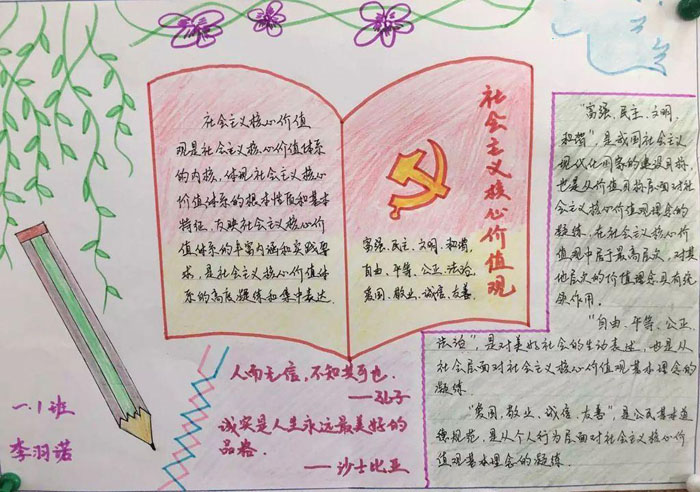 社会主义核心价值
观是社会主义核心价值体系
的内核，体现社会主义核心
价值体系的根本性质和基本
特征，反映社会主义核心价
值体系的丰富内涵和实践要
求，是社会主义核心价值体
系的高度凝练和集中表达.
社会主义核心价值观
富强、民主、文明、和谐，
自由、平等、公正、法治，
爱国、敬业、诚信、友善、
"富强、民主、文明，
和谐"，是我国社会主义
现代化国家的建设目标，
也是从价值目标层面对社
会主义核心价值观理念的
凝练，在社会主义核心价
值观中居于最高层次，对其
他层次的价值理念具有统
领作用。
"自由、平等、公正
法治"，是对美好社会的生动表述，也是从
社会层面对社会主义核心价值观基本理念的
凝练.
"爱国、敬业、诚信、友善"，是公民基本道
德规范，是从个人行为层面对社会主义核心价
值观基本理念的凝练.
人而无信，不知其可也.
——孔子
诚实是人生永远最美好的
品格.
——沙士比亚
一.1班
李羽诺